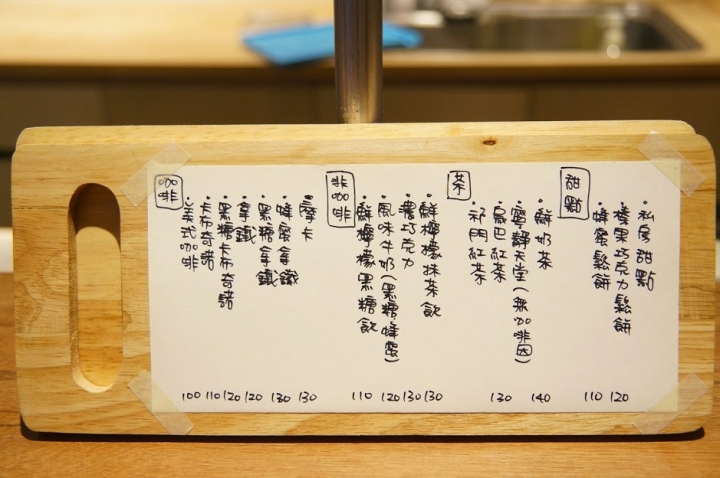 咖啡
・美式咖啡
・卡布奇諾
・黑糖卡布奇諾
・拿鐵
・黑糖拿鐵
・蜂蜜拿鐵
・摩卡
100 110 120 120 130 130
非咖啡
・鮮檸檬黑糖飲
・風味牛奶(黑糖蜂蜜)
・濃巧克力
・鮮檸檬抹茶飲
110 120 130 130
茶
・祁門紅茶
・烏巴紅茶
・寧靜天堂(無咖啡因)
・鮮奶茶
130 140
甜點
・蜂蜜鬆餅
・榛果巧克力鬆餅
・私房甜點
110 120